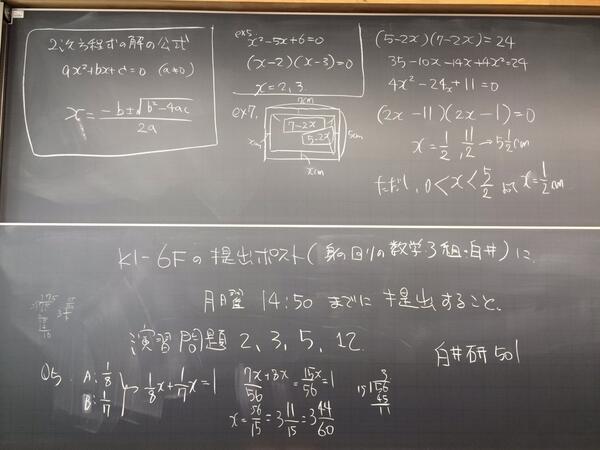 2次方程式の解の公式
ax²+bx+c=0 (a≠0)
x = (-b±√(b²-4ac))/2a
ex5
x²-5x+6=0
(x-2)(x-3)=0
x=2,3
ex7.
7cm
7-2x
5-2x
xcm
5cm
xcm
(5-2x)(7-2x)=24
35-10x-14x+4x²=24
4x²-24x+11=0
(2x-11)(2x-1)=0
x=1/2, 11/2→5 1/2 cm
ただし, 0<x<5/2 よりx=1/2 cm
K1-6Fの提出ポスト(身の回りの数学3組・白井)に
月曜 14:50 までに提出すること。
演習問題 2, 3, 5, 12
白井研501
Q5. A: 1/8
B: 1/7
→ 1/8x+1/7x=1
(7x+8x)/56 = 15x/56 = 1
x=56/15=3 11/15=3 44/60
3
15)56
45
11